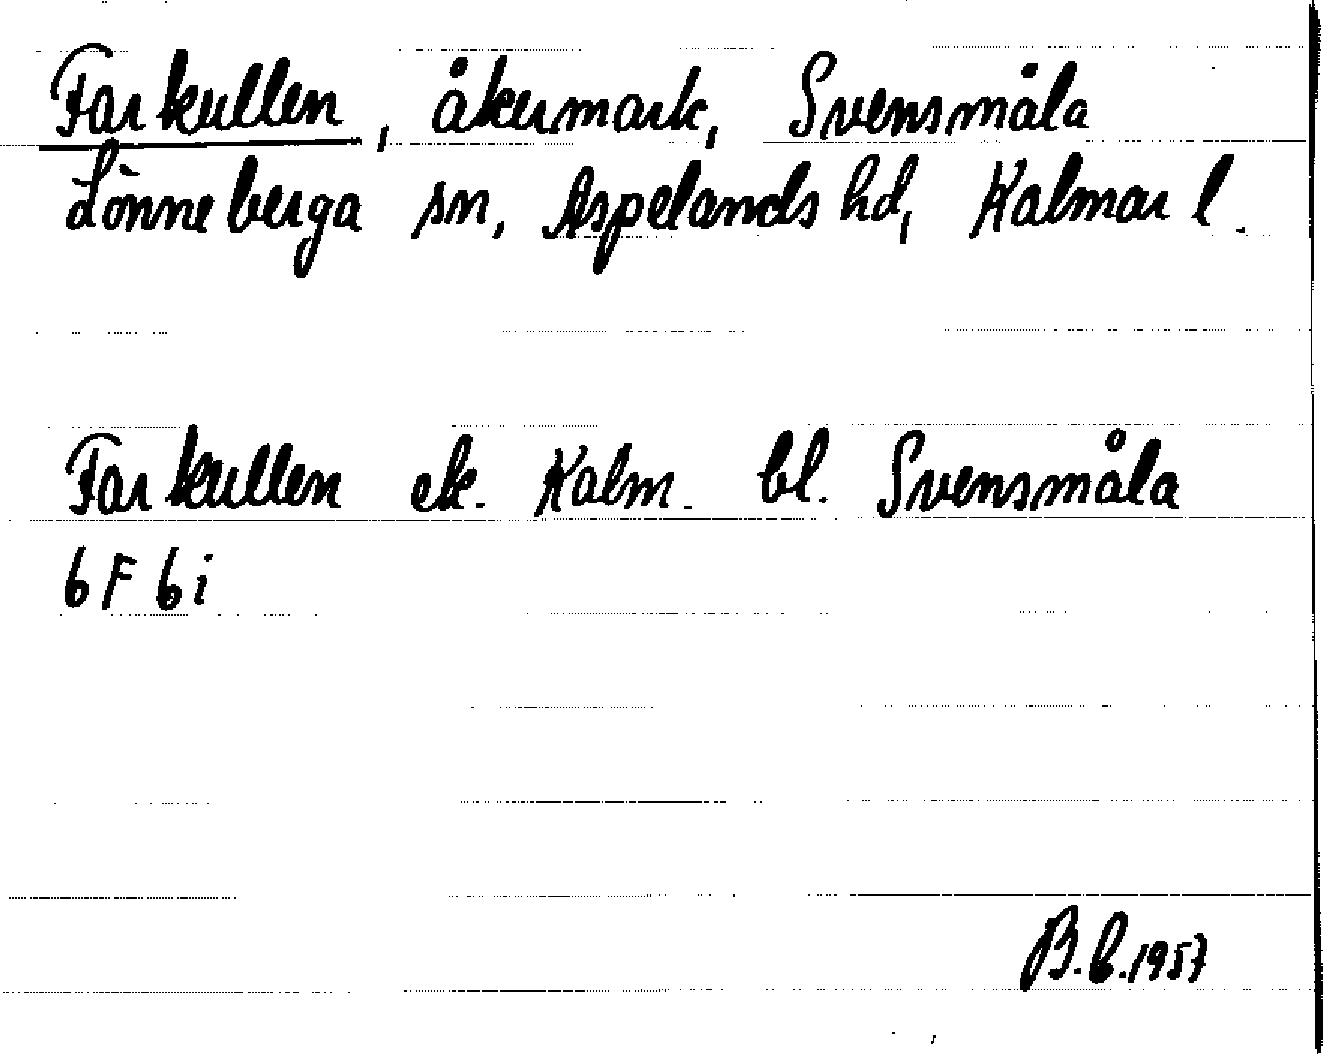 Farkullen, åkermark, Svensmåla
Lönneberga sn, Aspelands hd, Kalmar l.
Farkullen ek. Kalm. bl. Svensmåla
6F 6i
B.E. 1957